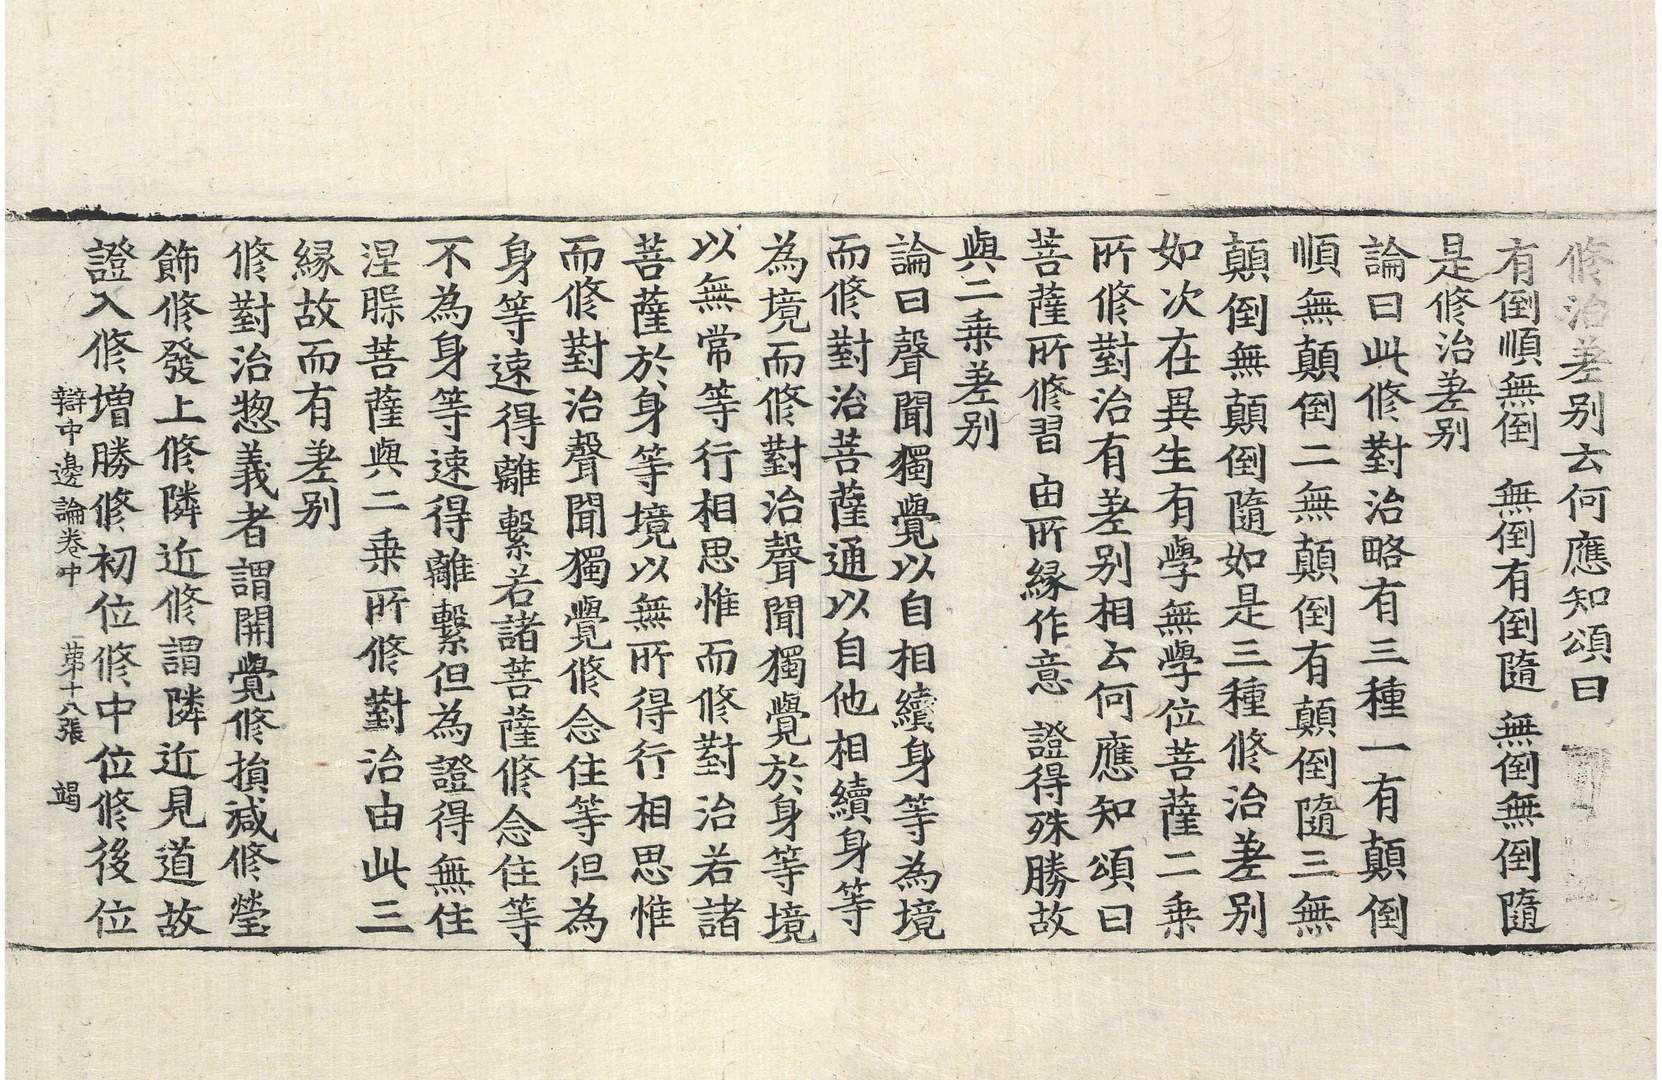 修治差別云何應知頌曰
有倒順無倒　無倒有倒隨　無倒無倒隨
是修治差別
論曰此修對治略有三種一有顛倒
順無顛倒二無顛倒有顛倒隨三無
顛倒無顛倒隨如是三種修治差別
如次在異生有學無學位菩薩二乗
所修對治有差別相云何應知頌曰
菩薩所修習　由所縁作意　證得殊勝故
與二乗差別
論曰聲聞獨覺以自相續身等為境
而修對治菩薩通以自他相續身等
為境而修對治聲聞獨覺於身等境
以無常等行相思惟而修對治若諸
菩薩於身等境以無所得行相思惟
而修對治聲聞獨覺修念住等但為
身等速得離繫若諸菩薩修念住等
不為身等速得離繫但為證得無住
涅槃菩薩與二乗所修對治由此三
縁故而有差別
修對治惣義者謂開覺修損減修瑩
飾修發上修隣近修謂隣近見道故
證入修增勝修初位修中位修後位
辯中邊論卷中　第十八張　竭